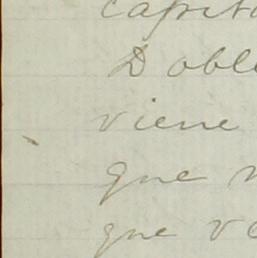 capita
Doble
viene
que n
que va